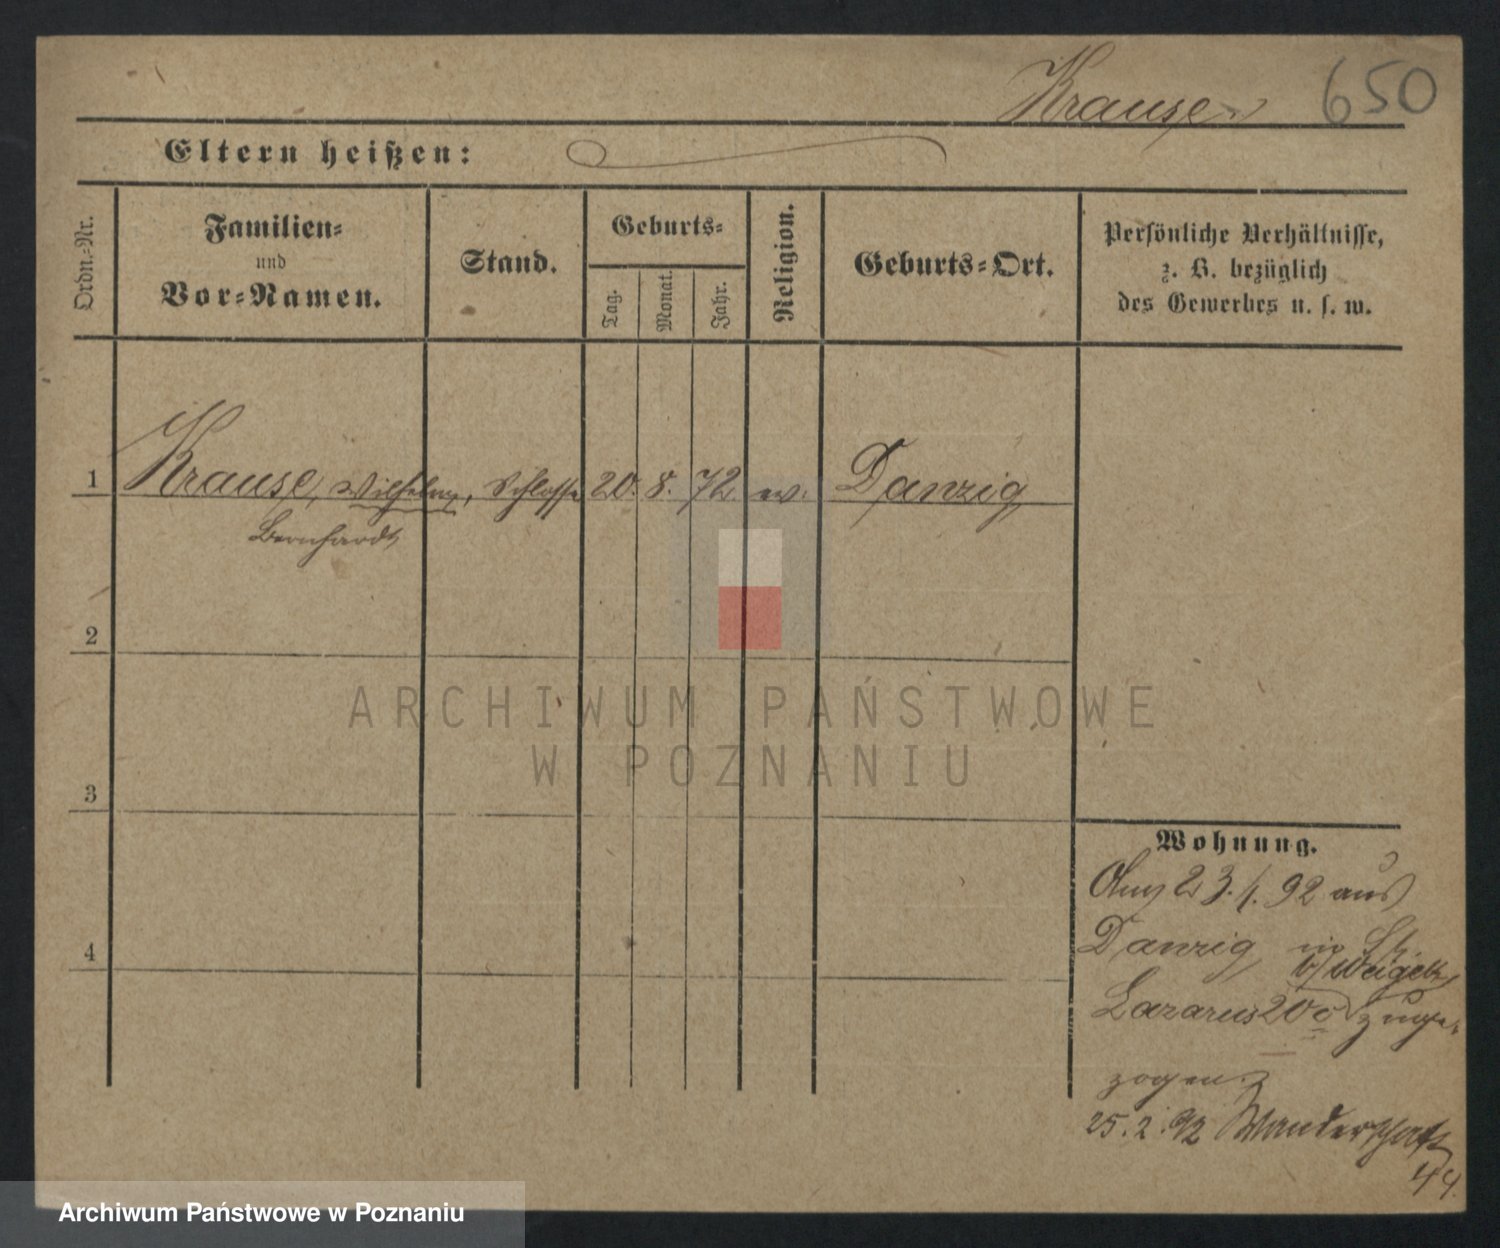 Krause 650
Eltern heißen:
Ordn.-Nr.
Familien-
und
Vor-Namen.
Stand.
Geburts-
Tag.
Monat.
Jahr.
Religion.
Geburts-Ort.
Persönliche Verhältnisse,
z. B. bezüglich
des Gewerbes u. s. w.
1 Krause, Wilhelm, Schlosser 20. 8. 72 ev. Danzig
Bernhardt
2
3
4
ARCHIWUM PAŃSTWOWE
W POZNANIU
Wohnung.
Am 23./1. 92 aus
Danzig in St.
b/ Weigelt
Lazarus 20c zuge-
zogen.
25. 2. 92 Wanderschaft
44.
Archiwum Państwowe w Poznaniu